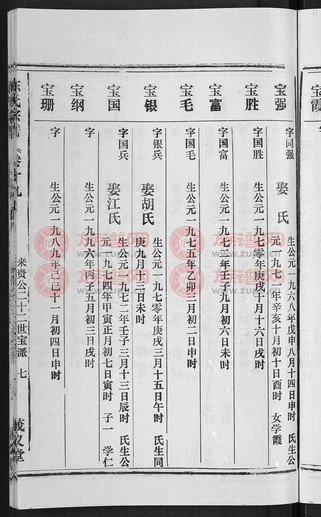 宝霞
宝强 字同强 生公元一九六八年戊申八月十四日申时
娶 氏 氏生公元一九七二年辛亥十月初十日酉时 女学霞
宝胜 字国胜 生公元一九七零年庚戌十月十六日戌时
宝富 字国富 生公元一九七二年壬子九月初六日未时
宝毛 字国毛 生公元一九七五年乙卯三月初二日申时
宝银 字银兵 生公元一九七零年庚戌三月十五日午时
娶胡氏 氏生同庚九月十三日未时
宝国 字国兵 生公元一九七二年壬子三月十三日辰时
娶江氏 氏生公元一九七四年甲寅正月初七日寅时 子一 学仁
宝纲 字 生公元一九九六年丙子五月初三日戌时
宝珊 字 生公元一九八九年己巳十一月初四日申时
来贵公二十二世宝派 七